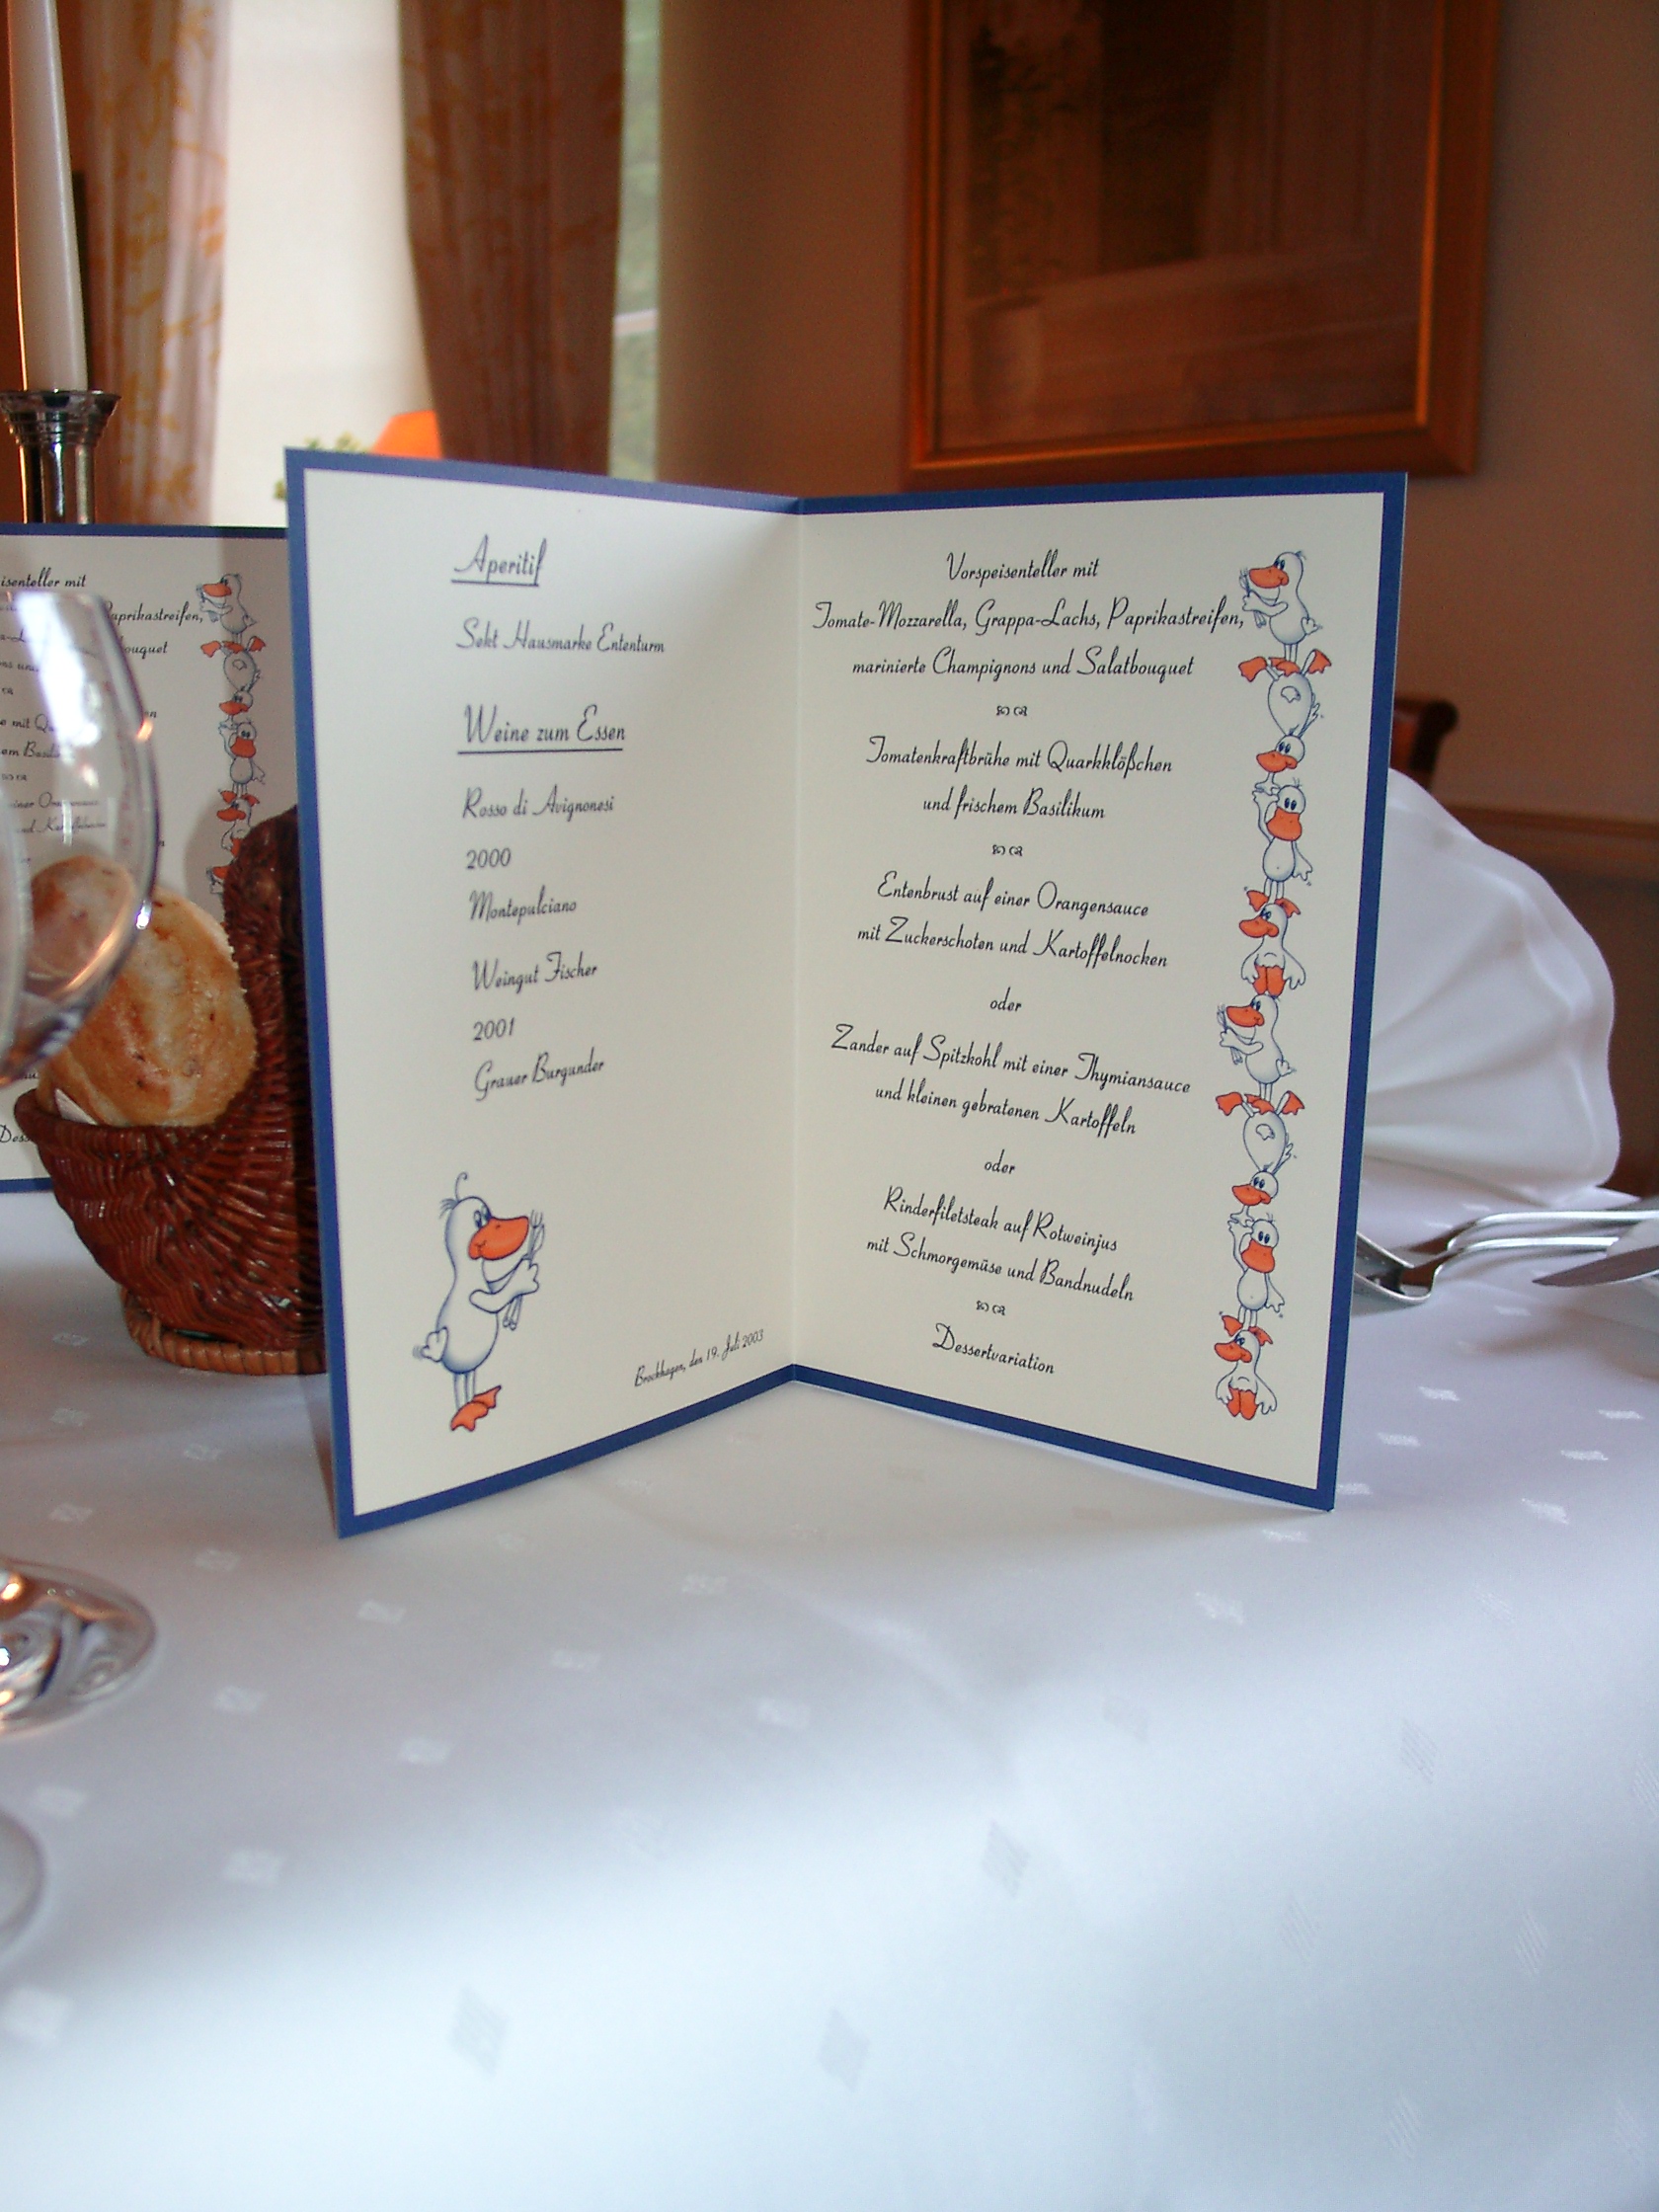 Aperitif
Sekt Hausmarke Ententurm
Weine zum Essen
Rosso di Avignonesi
2000
Montepulciano
Weingut Fischer
2001
Grauer Burgunder
Brockhagen, den 19. Juli 2003
Vorspeisenteller mit
Tomate-Mozzarella, Grappa-Lachs, Paprikastreifen,
marinierte Champignons und Salatbouquet
Tomatenkraftbrühe mit Quarkklößchen
und frischem Basilikum
Entenbrust auf einer Orangensauce
mit Zuckerschoten und Kartoffelnocken
oder
Zander auf Spitzkohl mit einer Thymiansauce
und kleinen gebratenen Kartoffeln
oder
Rinderfiletsteak auf Rotweinjus
mit Schmorgemüse und Bandnudeln
Dessertvariation
isenteller mit
aprikastreifen,
ouquet